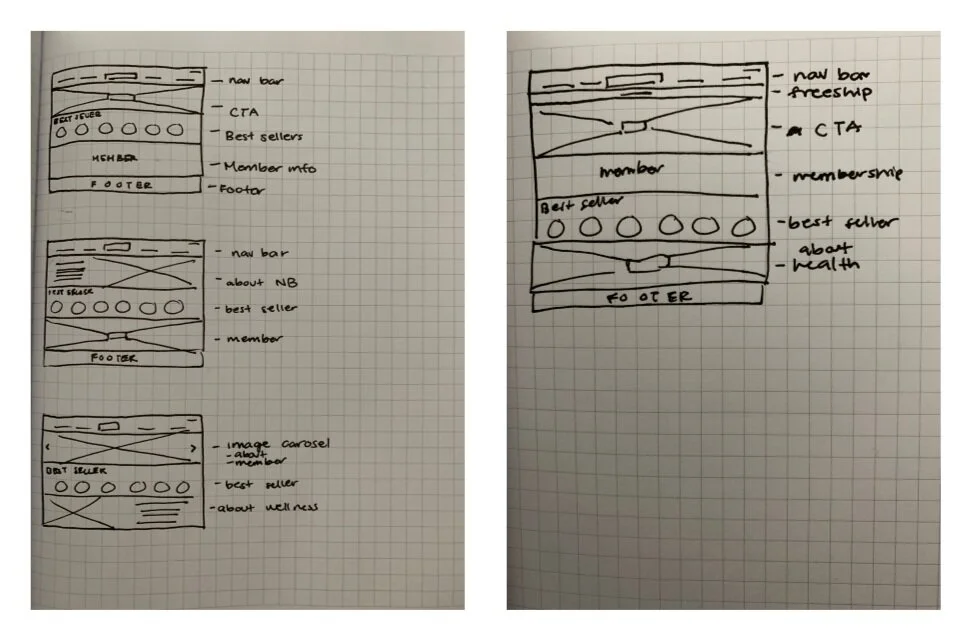 nav bar
CTA
BEST SELLER
Best sellers
MEMBER
Member info
FOOTER
Footer
nav bar
about NB
BEST SELLER
best seller
member
FOOTER
image carosel
- about
- member
BEST SELLER
best seller
about wellness
nav bar
freeship
CTA
member
membership
Best seller
best seller
about
health
FOOTER